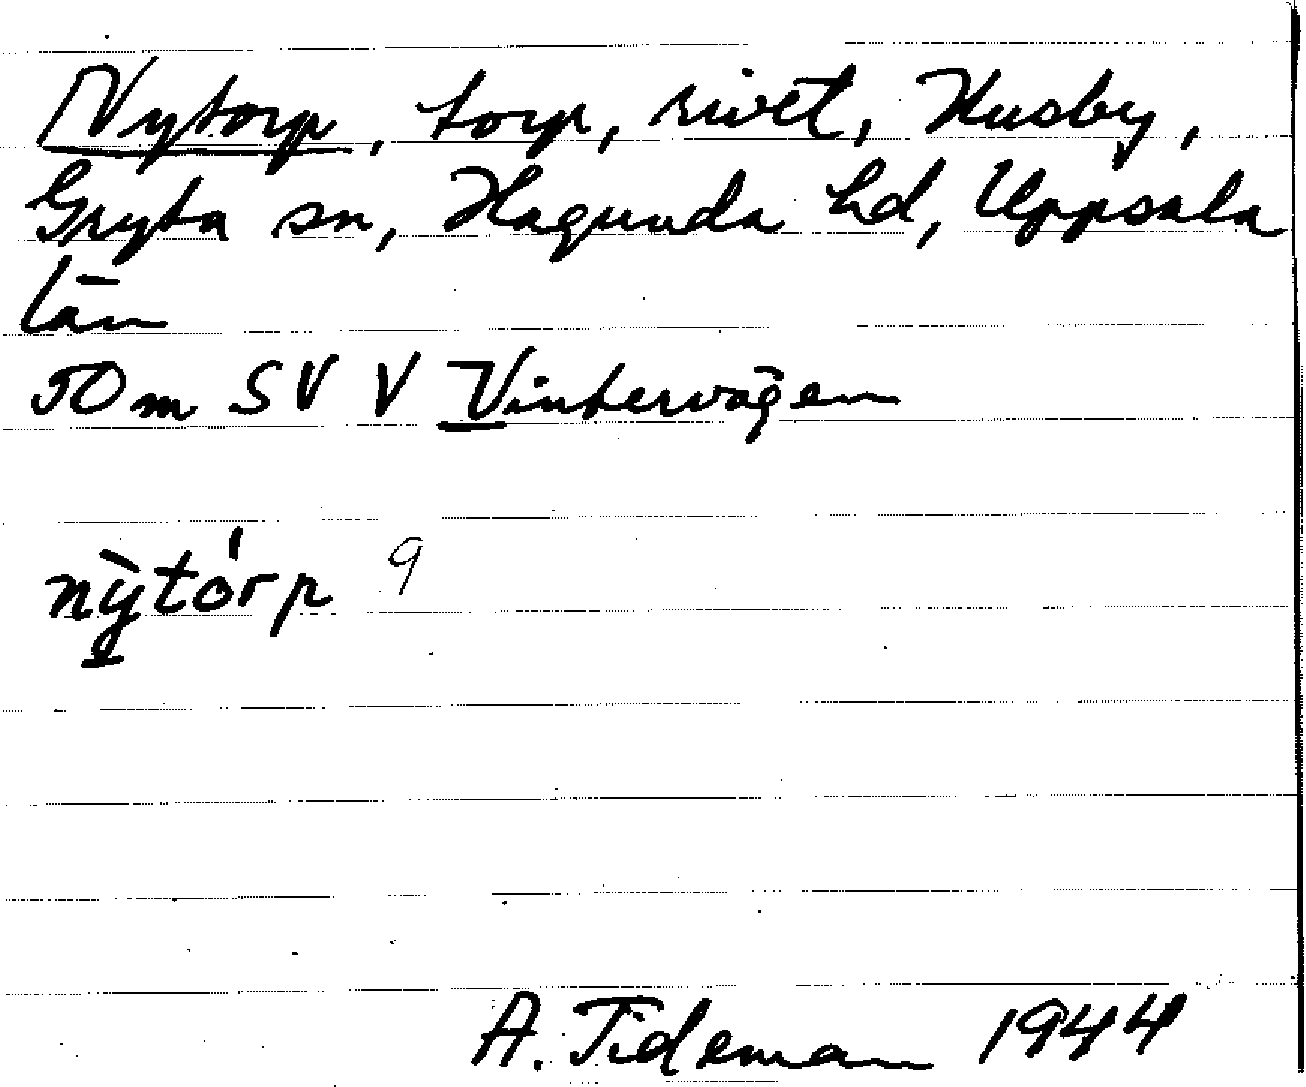 Nytorp, torp, rivet, Husby,
Gryta sn, Hagunda hd, Uppsala
län
50 m SV V Vintervägen
nỳtórp 9
A. Tideman 1944